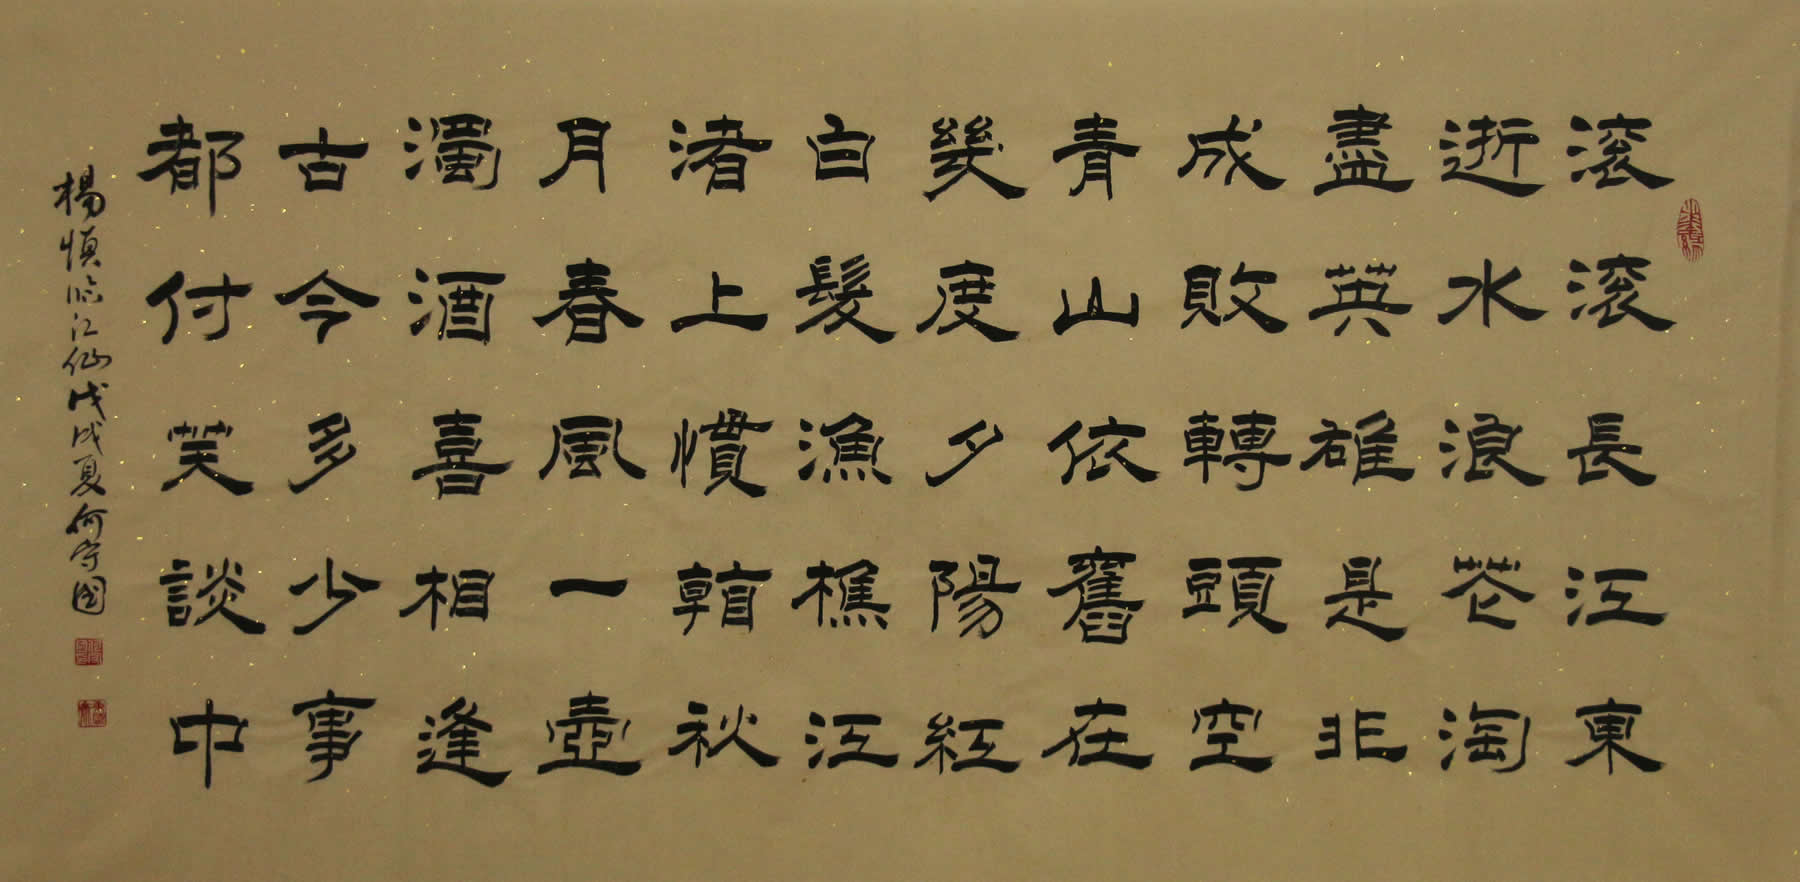 滾滾長江東
逝水浪花淘
盡英雄是非
成敗轉頭空
青山依舊在
幾度夕陽紅
白髮漁樵江
渚上慣看秋
月春風一壺
濁酒喜相逢
古今多少事
都付笑談中
楊慎臨江仙戊戌夏何守國